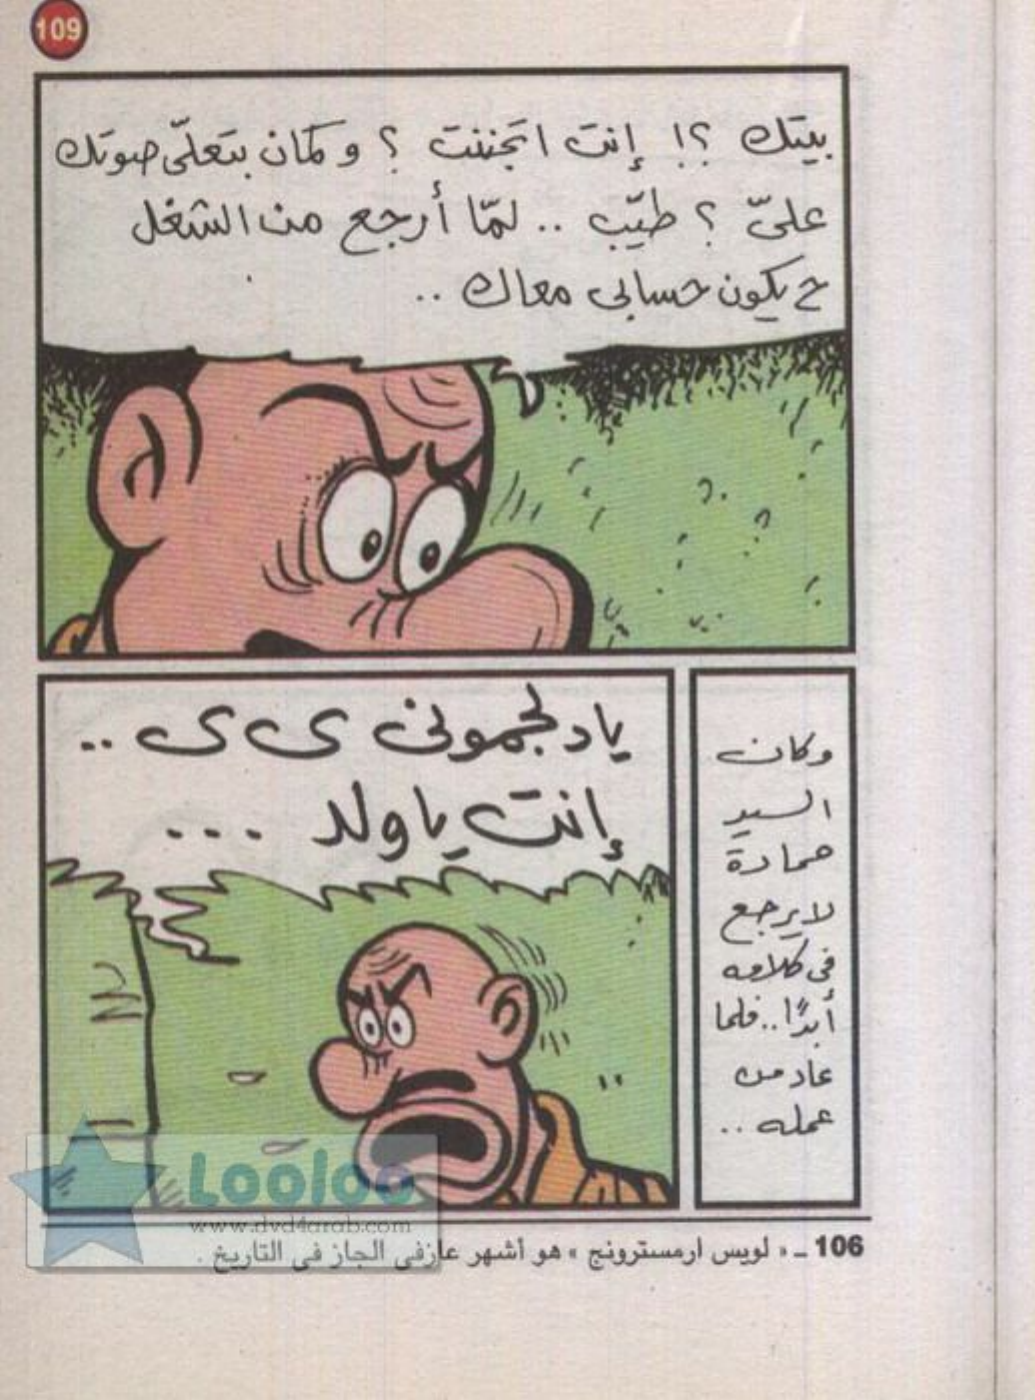 109
بيتك ؟! إنت اتجننت ؟ وكمان بتعلّى صوتك
علىّ ؟ طيّب .. لمّا أرجع من الشغل
ح يكون حسابى معاك ..
وكان
السيد
حمادة
لا يرجع
فى كلامه
أبدًا .. فلما
عاد من
عمله ..
ياد لجمونى ى ى ..
إنت يا ولد ...
Looloo
www.dvd4arab.com
106 ــ « لويس ارمسترونج » هو أشهر عازفى الجاز فى التاريخ .